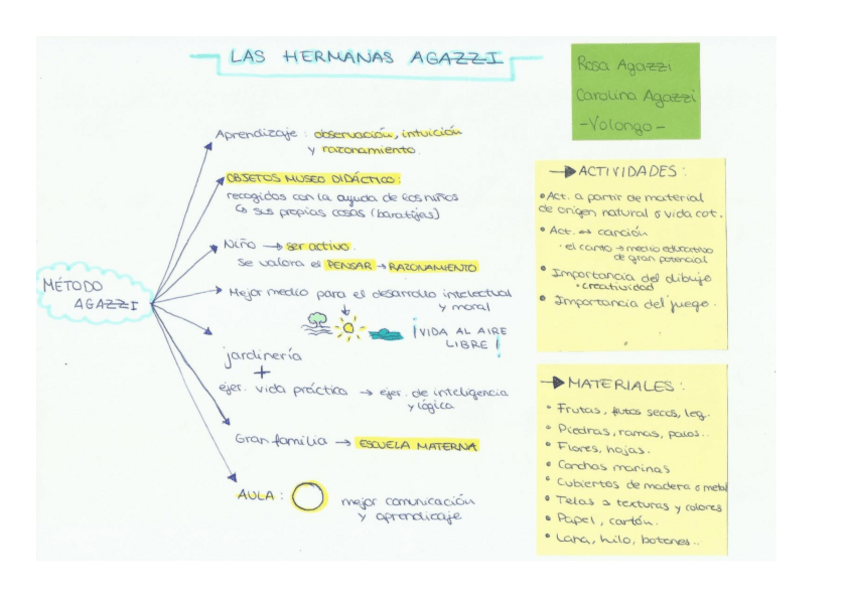 LAS HERMANAS AGAZZI
Rosa Agazzi
Carolina Agazzi
-Volongo-
MÉTODO
AGAZZI
Aprendizaje : observación, intuición
y razonamiento.
OBJETOS MUSEO DIDÁCTICO:
recogidos con la ayuda de los niños
↳ sus propias cosas (baratijas)
Niño → ser activo.
Se valora el PENSAR → RAZONAMIENTO
Mejor medio para el desarrollo intelectual
y moral
¡VIDA AL AIRE
LIBRE!
jardinería
+
ejer. vida práctica → ejer. de inteligencia
y lógica
Gran familia → ESCUELA MATERNA
AULA :
mejor comunicación
y aprendizaje
→ ACTIVIDADES :
• Act. a partir de material
de origen natural o vida cot.
• Act. ↔ canción
· el canto → medio educativo
de gran potencial
• Importancia del dibujo
· creatividad
• Importancia del juego.
→ MATERIALES :
• Frutas, frutos secos, leg.
• Piedras, ramas, palos..
• Flores, hojas.
• Conchas marinas
• Cubiertos de madera o metal
• Telas ≠ texturas y colores
• Papel, cartón.
• Lana, hilo, botones..